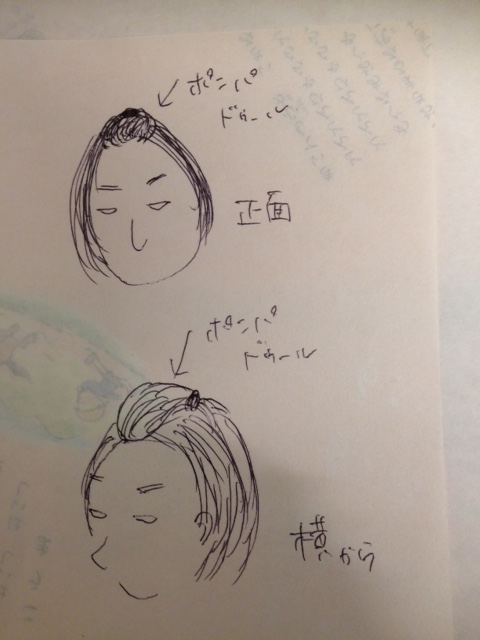 ポンパ
ドゥール
正面
ポンパ
ドゥール
横から